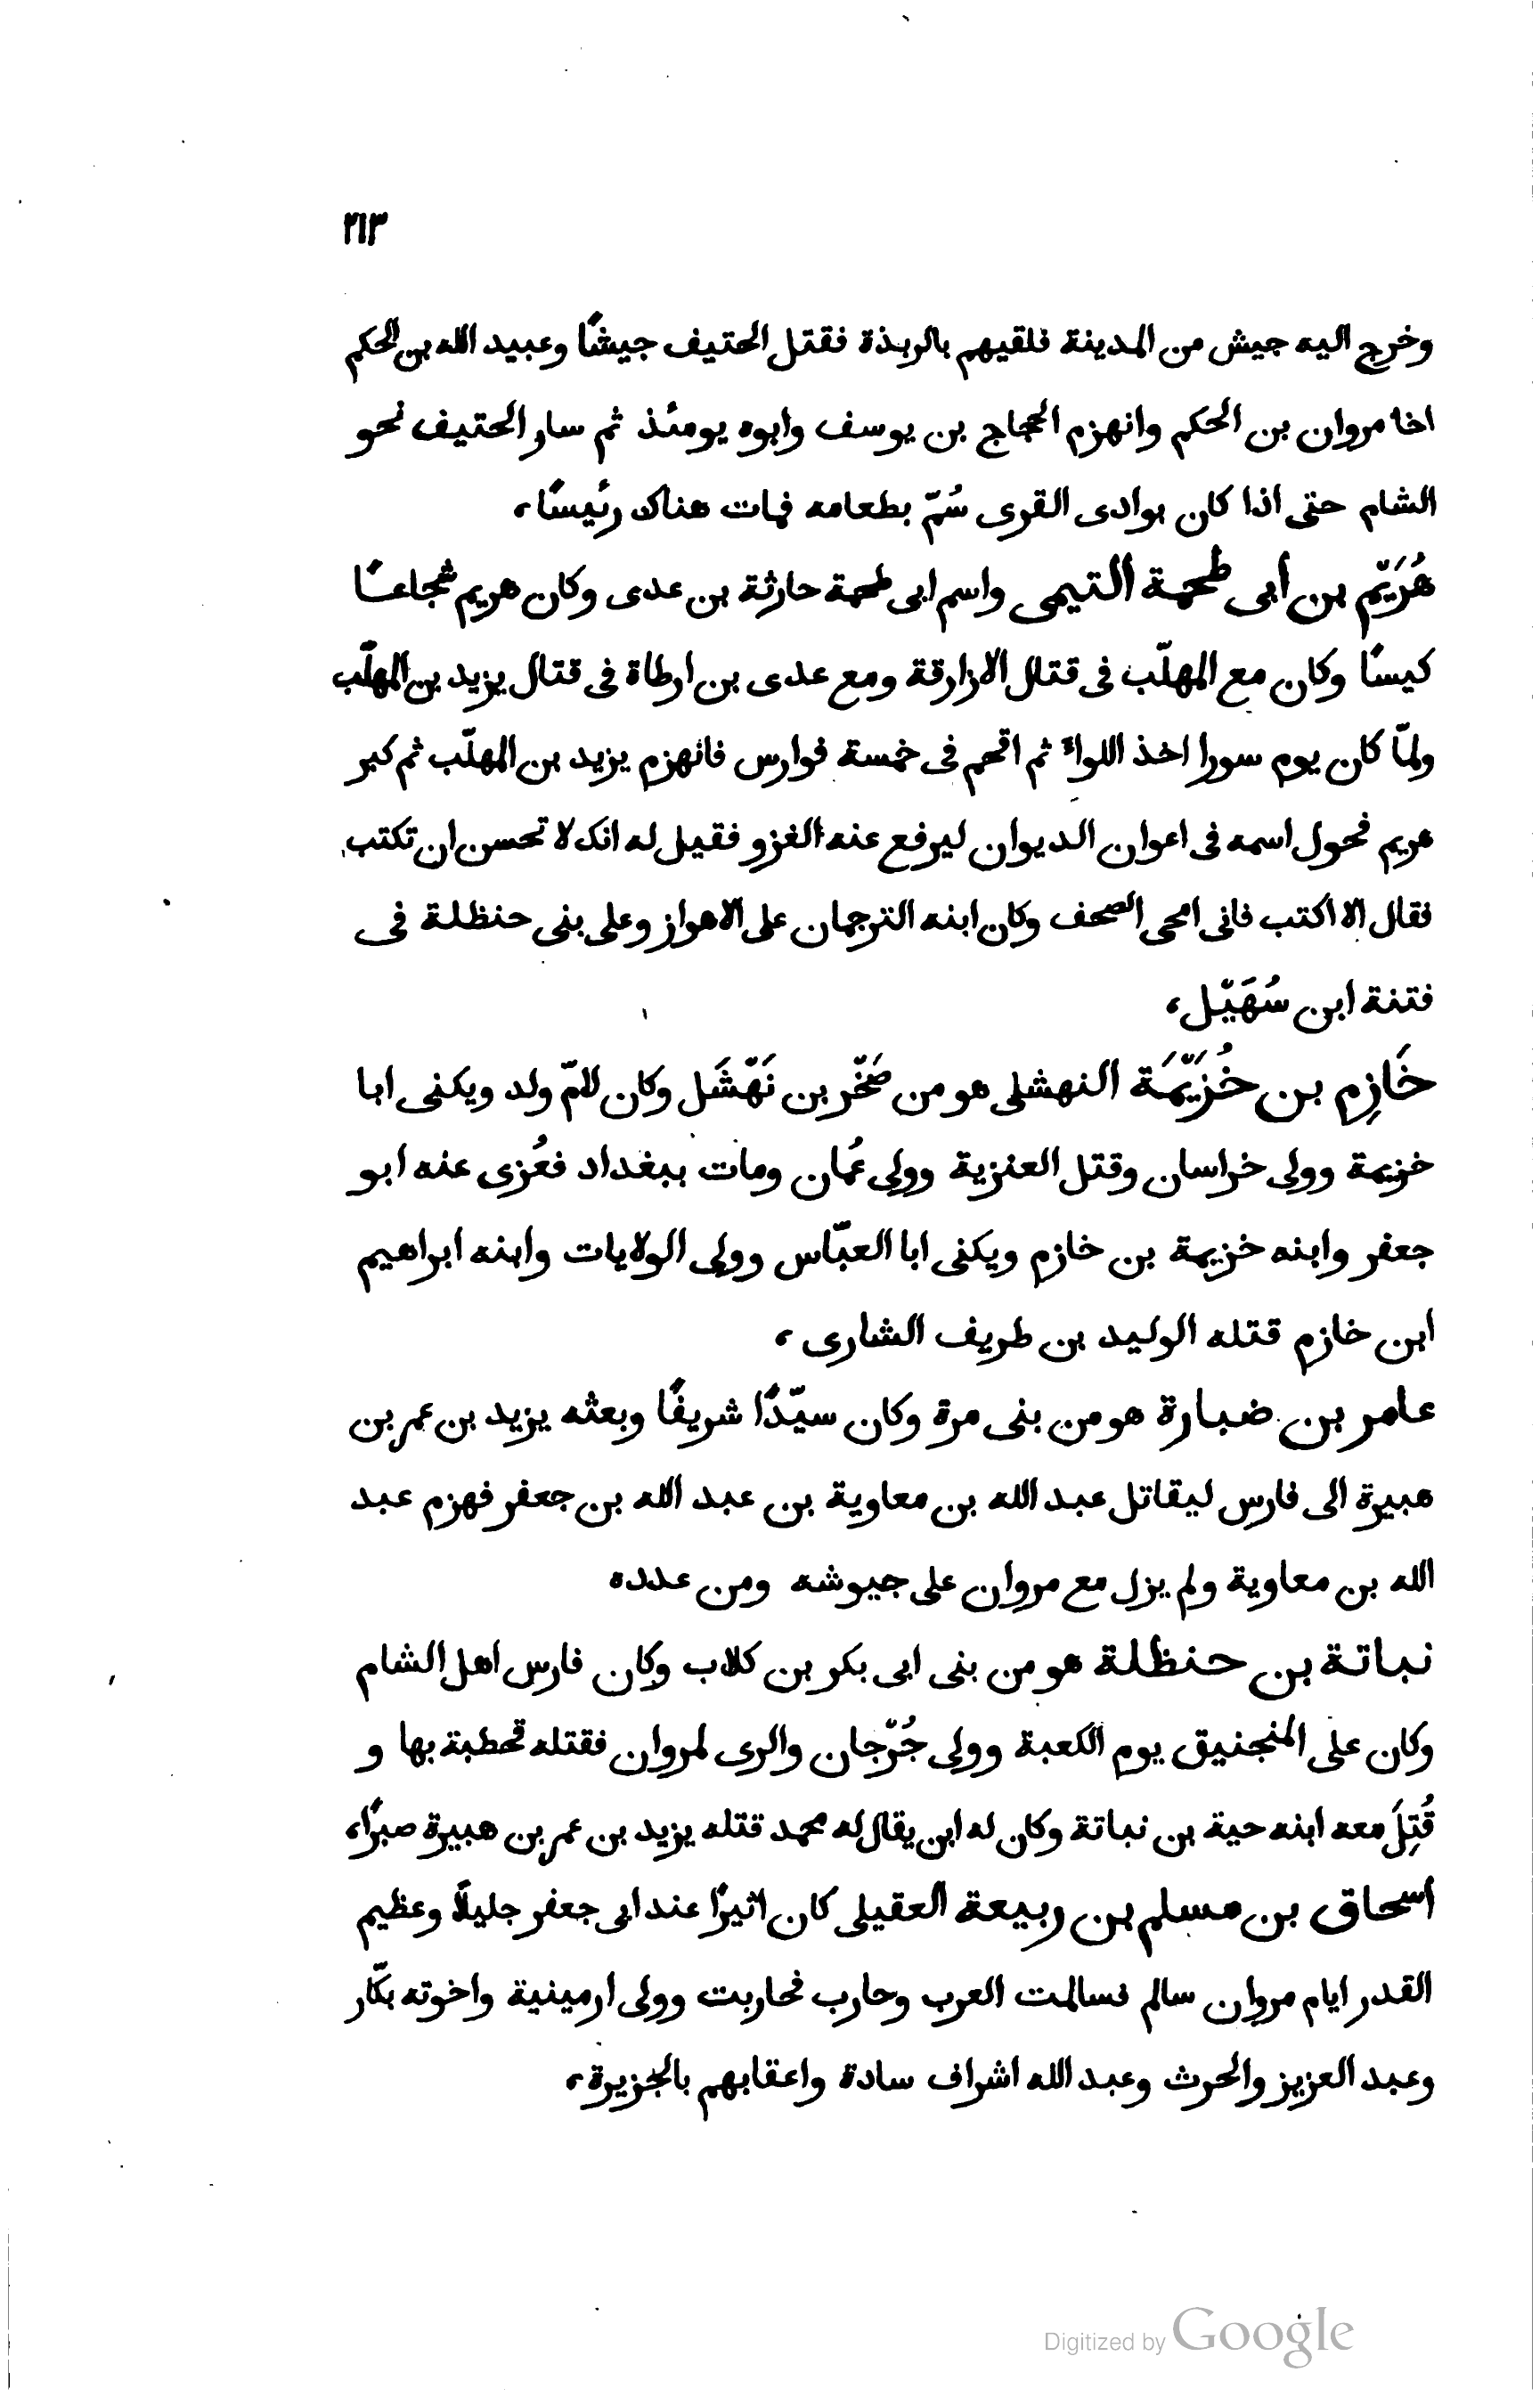 ٢١٣
وخرج اليه جيش من المدينة فلقيهم بالربذة فقتل الحتيف جيشًا وعبيد الله بن الحكم
اخا مروان بن الحكم وانهزم الحجاج بن يوسف وابوه يومئذ ثم سار الحتيف نحو
الشام حتى اذا كان بوادى القرى سُمّ بطعامه فمات هناك رئيسًا،
هُرَيْم بن أبى طحمة التيمى واسم ابى طحمة حارثة بن عدى وكان هريم شجاعًا
كيسًا وكان مع المهلّب فى قتال الازارقة ومع عدى بن ارطاة فى قتال يزيد بن المهلّب
ولمّا كان يوم سورا اخذ اللواء ثم اقحم فى خمسة فوارس فانهزم يزيد بن المهلّب ثم كبر
هريم فحول اسمه فى اعوان الديوان ليرفع عنه الغزو فقيل له انك لا تحسن ان تكتب
فقال الا اكتب فانى امحى الصحف وكان ابنه الترجمان على الاهواز وعلى بنى حنظلة فى
فتنة ابن سُهَيْل،
خَازِم بن خُزَيْمَة النهشلى هو من صَخْر بن نَهْشَل وكان لامّ ولد ويكنى ابا
خزيمة وولى خراسان وقتل العنزية وولى عُمان ومات ببغداد فعُزى عنه ابو
جعفر وابنه خزيمة بن خازم ويكنى ابا العبّاس وولى الولايات وابنه ابراهيم
ابن خازم قتله الوليد بن طريف الشارى،
عامر بن ضبارة هو من بنى مرة وكان سيّدًا شريفًا وبعثه يزيد بن عمر بن
هبيرة الى فارس ليقاتل عبد الله بن معاوية بن عبد الله بن جعفر فهزم عبد
الله بن معاوية ولم يزل مع مروان على جيوشه ومن عدده
نباتة بن حنظلة هو من بنى ابى بكر بن كلاب وكان فارس اهل الشام
وكان على المنجنيق يوم الكعبة وولى جُرْجان والرى لمروان فقتله قحطبة بها و
قُتِلَ معه ابنه حية بن نباتة وكان له ابن يقال له محمد قتله يزيد بن عمر بن هبيرة صبرًا،
اسحاق بن مسلم بن ربيعة العقيلى كان اثيرًا عند ابى جعفر جليلًا وعظيم
القدر ايام مروان سالم فسالمت العرب وحارب فحاربت وولى ارمينية واخوته بكّار
وعبد العزيز والحرث وعبد الله اشراف سادة واعقابهم بالجزيرة،
Digitized by Google